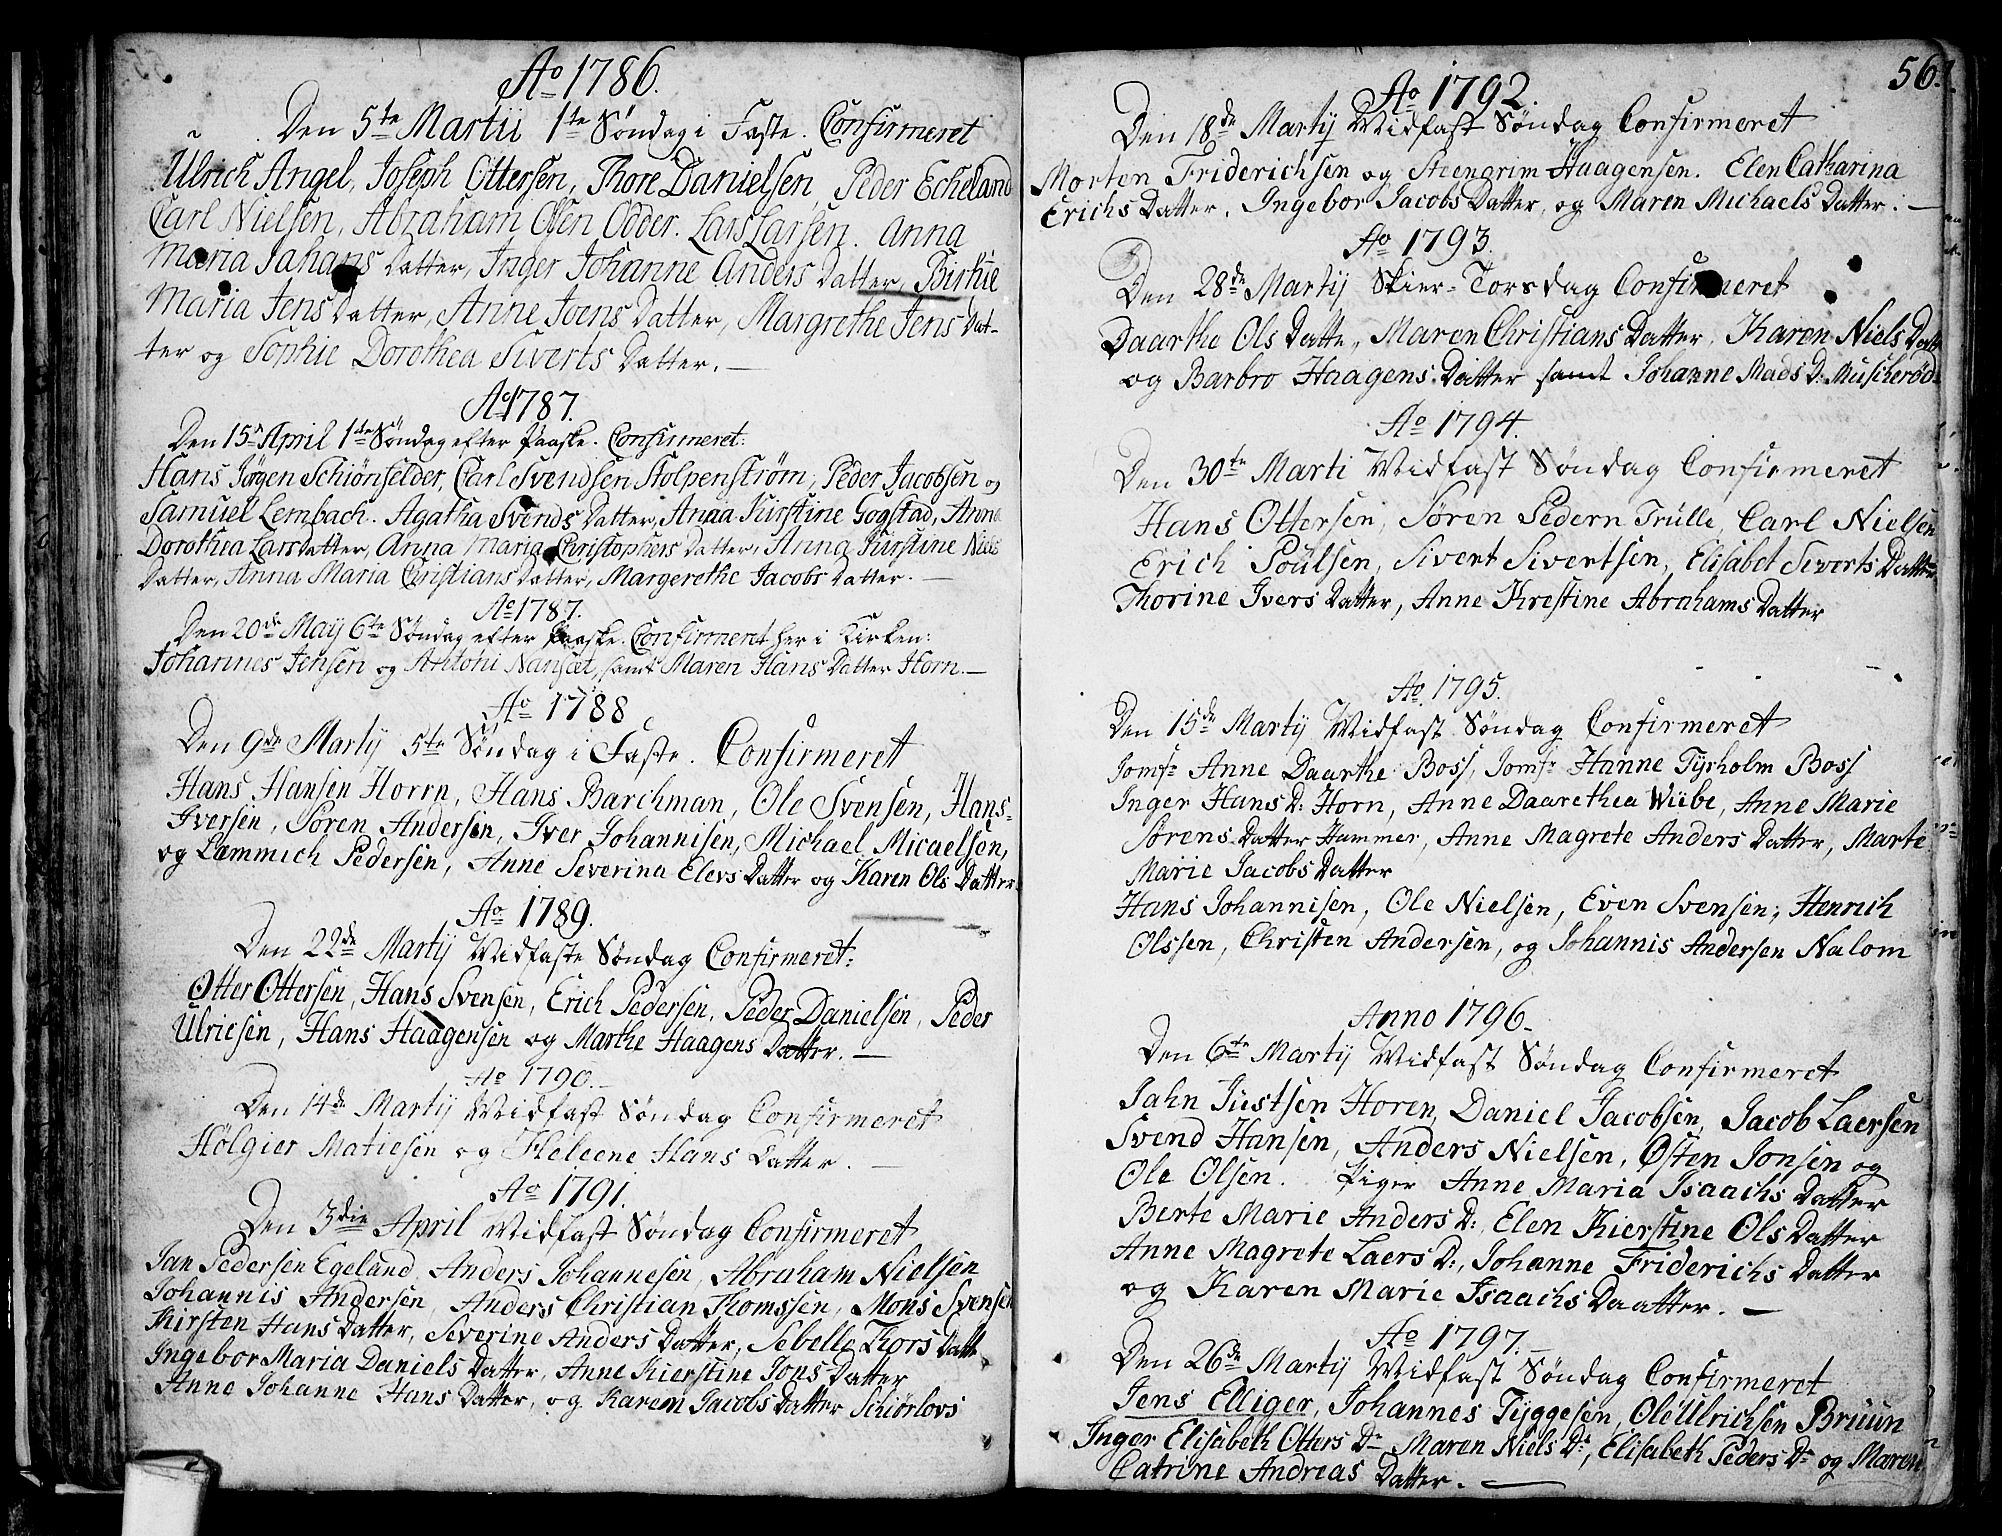 Ao 1786.
Den 5te Martii 1te Søndag i Faste. Confirmeret
Ulrich Angel, Joseph Ottersen, Thore Danielsen, Peder Echeland
Carl Nielsen, Abraham Olsen Odder. Lars Larsen. Anna
Maria Jahans Datter, Inger Johanne Anders Datter, Birthe
Maria Jens Datter, Anne Joens Datter, Margrethe Jens Dat-
ter og Sophie Dorothea Siverts Datter.
Ao 1787.
Den 15de April 1te Søndag efter Paaske. Confirmeret:
Hans Jørgen Schiønfelder, Carl Svendsen Stolpenstrøm, Peder Jacobsen og
Samuel Lembach. Agatha Svends Datter, Anna Kirstine Gogstad, Anna
Dorothea Lars datter, Anna Maria Christophers Datter, Anna Kirstine Niels
Datter, Anna Maria Christians Datter, Margerethe Jacobs Datter.
Ao 1787.
Den 20de Maij 6te Søndag efter Paaske. Confirmeret her i Kirken:
Johannes Jensen og Antoni Nanset, samt Maren Hans Datter Horn.
Ao 1788
Den 9de Martij 5te Søndag i Faste. Confirmeret
Hans Hansen Horrn, Hans Barchman, Ole Svensen, Hans
Iversen, Søren Andersen, Iver Johannisen, Michael Micaelsen,
og Lemmich Pedersen, Anne Severina Elevs Datter og Karen Ols Datter
Ao 1789.
Den 22de Martij Midfaste Søndag Confirmeret:
Otter Ottersen, Hans Svensen, Erich Pedersen, Peder Danielsen, Peder
Ulriesen, Hans Haagensen og Marthe Haagens Datter.
Ao 1790.
Den 14de Martij Midfast Søndag Confirmeret
Hølgier Matiesen og Heleene Hans Datter.
Ao 1791.
Den 3die April Midfast Søndag Confirmeret
Jan Pedersen Egeland, Anders Johannesen, Abraham Nielsen
Johannis Andersen, Anders Christian Thomssen, Mons Svensen
Kirsten Hans Datter, Severine Anders Datter, Sebelle Thors Datte
Ingebor Maria Daniels Datter, Anne Kierstine Jons Datter
Anne Johanne Hans Datter, og Karen Jacobs Datter Schiørlovs
56.
Ao 1792
Den 18de Martij Midfast Søndag Confirmeret
Morten Friderichsen og Steengrim Haagensen. Elen Catharina
Erichs Datter, Ingebor Jacobs Datter, og Maren Michaels Datter.
Ao 1793.
Den 28de Martij Skier-Torsdag Confirmeret
Daarthe Ols Datte, Maren Christians Datter, Karen Niels Datt
og Barbro Haagens Datter samt Johanne Mads D: Muscherød
Ao 1794.
Den 30te Marti Midfast Søndag Confirmeret
Hans Ottersen, Søren Pedern Trulle, Carl Nielsen
Erich Poulsen, Sivert Sivertsen, Elisabet Siverts Datter
Thorine Ivers Datter, Anne Krestine Abrahams Datter
Ao 1795.
Den 15de Martij Midfast Søndag Confirmeret
Jomfr Anne Daarthe Boss, Jomfr Hanne Tyrholm Boss
Inger Hans D: Horn, Anne Daarethea Wiibe, Anne Marie
Sørens Datter Hammer, Anne Magrete Anders Datter, Marte
Marie Jacobs Datter
Hans Johannisen, Ole Nielsen, Even Svensen, Henrich
Olssen, Christen Andersen, og Johannis Andersen Nalom
Anno 1796.
Den 6te Martij Midfast Søndag Confirmeret
Jahn Justsen Horen, Daniel Jacobsen, Jacob Laersen
Svend Hansen, Anders Nielsen, Østen Jonsen og
Ole Olsen. Piger Anne Maria Isaachs Datter
Berte Marie Anders D:, Elen Kierstine Ols Datter
Anne Magrete Laers D:, Johanne Friderichs Datter
og Karen Marie Isaachs Daatter.
Ao 1797.
Den 26de Martij Midfast Søndag Confirmeret
Jens Elliger, Johannes Tyggesen, Ole Ulrichsen Bruun
Inger Elisabeth Otters Dr Maren Niels Dr, Elisabeth Peders Dr og Maren
Catrine Andreas Datter.